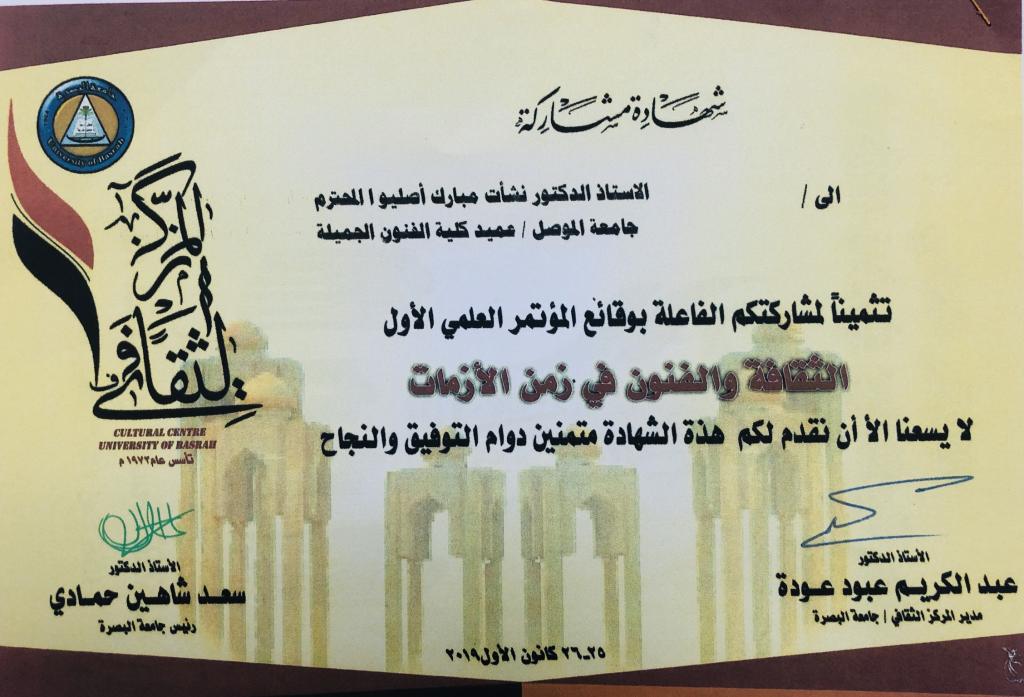 شهادة مشاركة
الى /
الاستاذ الدكتور نشأت مبارك أصليوا المحترم
جامعة الموصل / عميد كلية الفنون الجميلة
تثميناً لمشاركتكم الفاعلة بوقائع المؤتمر العلمي الأول
الثقافة والفنون في زمن الأزمات
لا يسعنا الأ أن نقدم لكم هذة الشهادة متمنين دوام التوفيق والنجاح
جامعة البصرة
University of Basrah
المركز الثقافي
CULTURAL CENTRE
UNIVERSITY OF BASRAH
تأسس عام ١٩٧٢ م
الأستاذ الدكتور
عبد الكريم عبود عودة
مدير المركز الثقافي / جامعة البصرة
الأستاذ الدكتور
سعد شاهين حمادي
رئيس جامعة البصرة
٢٥ـ٢٦ كانون الأول ٢٠١٩